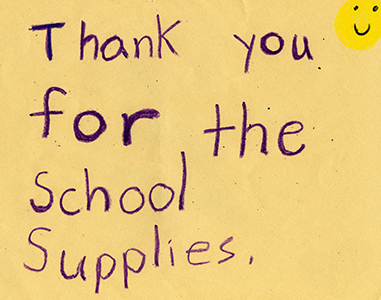 Thank you
for the
School
Supplies.